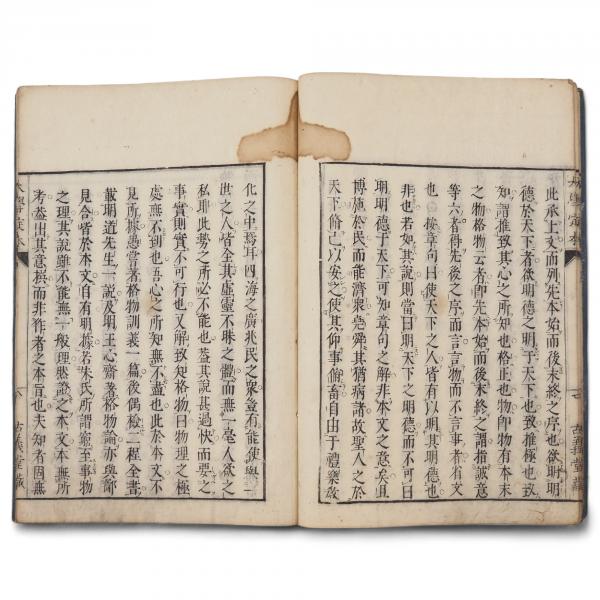 大學定本
此承上文而列先本始而後末終之序也欲明明
德於天下者欲明明德于天下也致推極也致
知謂推致其心之所知也格正也物卽物有本末
之物格物云者卽先本始而後末終之謂指誠意
等六者得先後之序而言言物而不言事者省文
也 按章句曰使天下之人皆有以明其明德也
非也若如其說則當曰明天下之明德而不可曰
明明德于天下可知章句之解非本文之意矣且
博施於民而能濟衆堯舜其猶病諸故聖人之於
天下脩己以安之使其仰事俯畜自由于禮樂敎
古義堂藏
化之中焉耳四海之廣兆民之衆豈有能使舉一
世之人皆全其虛靈不昧之體而無一毫人欲之
私耶此勢之所必不能也葢其說甚過快而要之
事實則實不可行也又解致知格物曰物理之極
處無不到也吾心之所知無不盡也此於本文不
見所據愚嘗著格物訓義一篇後偶檢二程全書
載明道先生一說及明王心齋著格物論亦與鄙
見合皆於本文自有明據若朱氏所謂窮至事物
之理其說雖不能無一般理然證之本文本無所
考葢出其意撰而非作者之本旨也夫知者固無
大學定本
八
古義堂藏